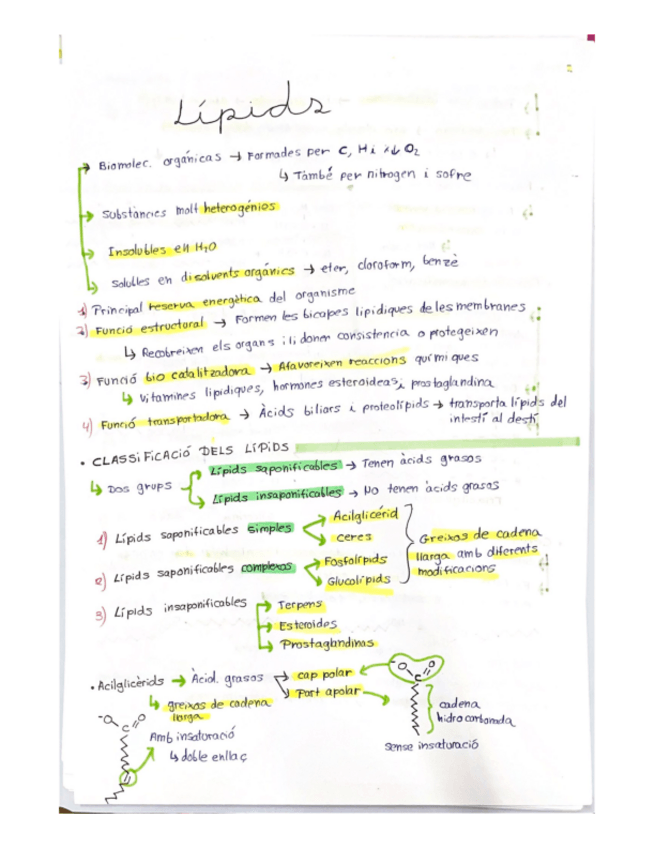 Lípids
Biomolec. orgánicas → Formades per C, H i ↓ O₂
↳ També per nitrogen i sofre
Substàncies molt heterogénios
Insolubles en H₂O
Solubles en disolvents orgànics → eter, cloroform, benzè
1) Principal reserva energètica del organisme
2) Funció estructural → Formen les bicapes lipídiques de les membranes
↳ Recobreixen els organs i li doner consistencia o protegeixen
3) Funció bio catalitzadora → Afavoreixen reaccions químiques
↳ Vitamines lipidiques, hormones esteroideas, prostaglandina
4) Funció transportadora → Àcids biliars i proteolípids → transporta lípids del
intestí al destí
• CLASSIFICACIÓ DELS LÍPIDS
↳ Dos grups
Lípids saponificables → Tenen àcids grasos
Lípids insaponificables → No tenen àcids grasos
1) Lípids saponificables simples
Acilglicérid
ceres
2) Lípids saponificables complexos
Fosfolípids
Glucolípids
Greixos de cadena
llarga amb diferents
modificacions
3) Lípids insaponificables
Terpens
Esteroides
Prostaglandinas
• Acilglicèrids → Àcid. grasos
cap polar
Part apolar
↳ greixos de cadena
llarga
-O O
C
cadena
hidrocarbonada
Sense insaturació
-O O
C
Amb insaturació
↳ doble enllaç